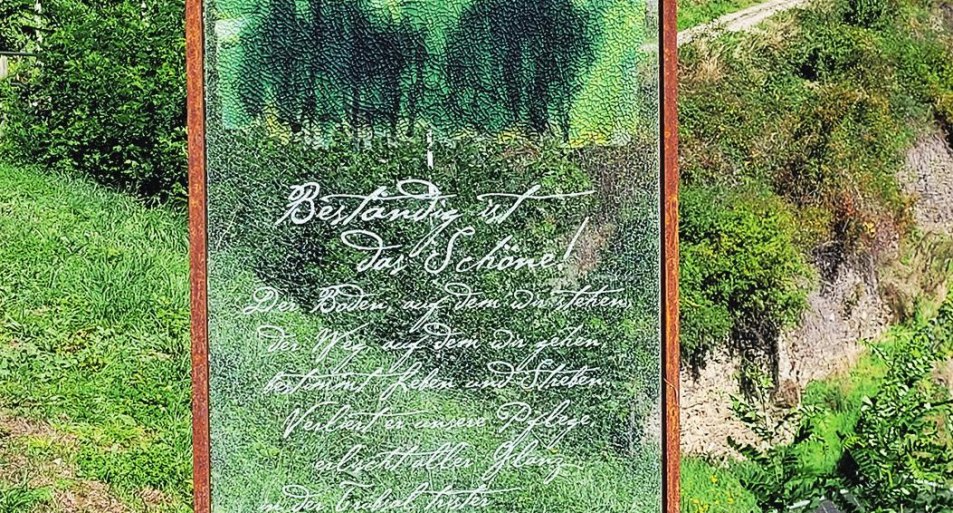 Beständig ist
das Schöne!
Der Boden, auf dem wir stehen,
der Weg, auf dem wir gehen,
bestimmt Leben und Streben.
Verliert er unsere Pflege
erlischt aller Glanz
in der